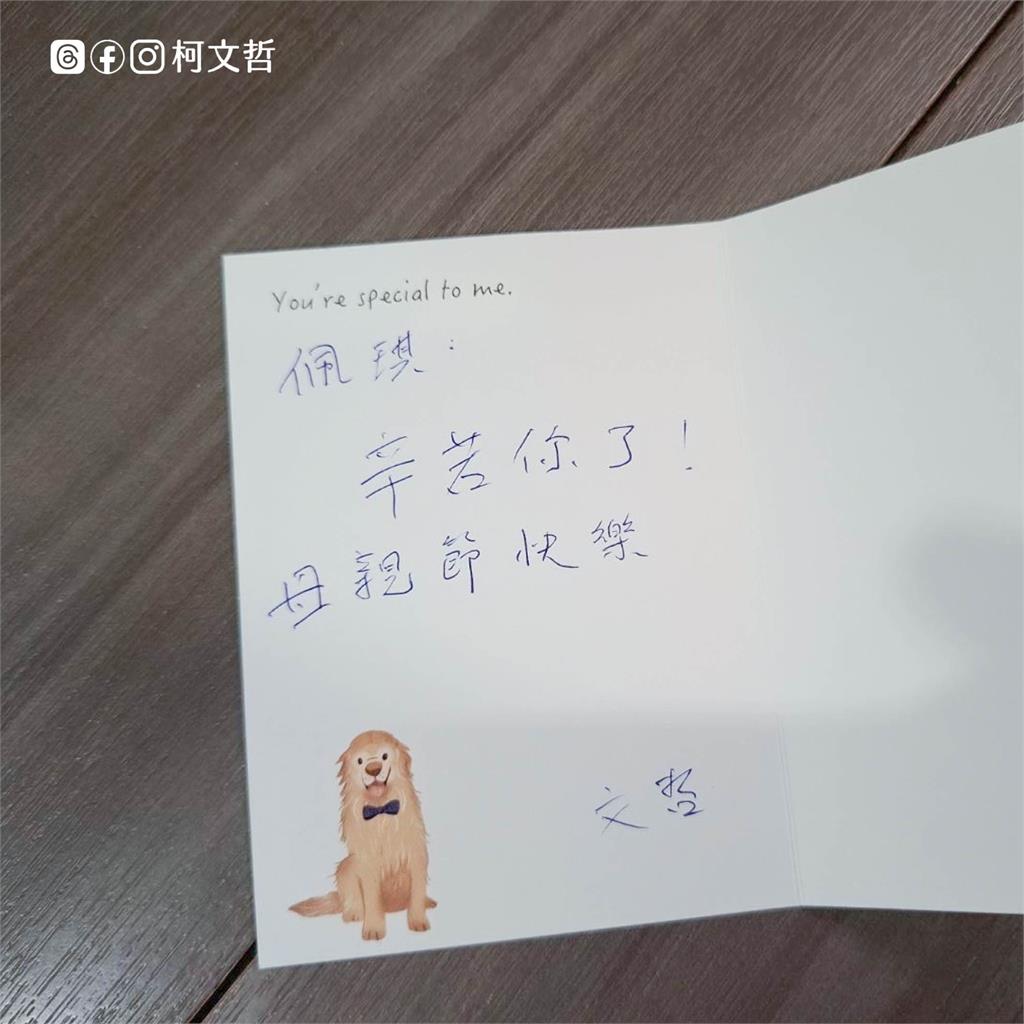 柯文哲
You're special to me.
佩琪:
辛苦你了!
母親節快樂
文哲